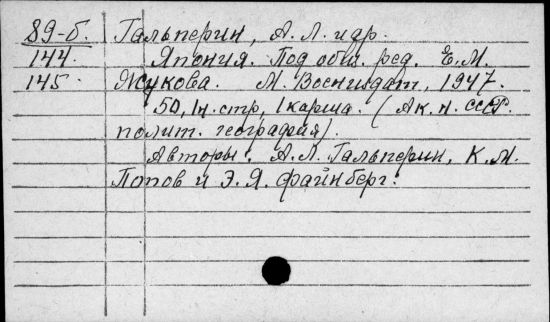 89-б. Гальперин, А. Л. и др.
144. Япония. Под общ. ред. Е. М.
145. Жукова. М. Воениздат, 1947.
50, 1н. стр, 1 карта. (Ак. н. СССР.
полит. география).
Авторы: А. Л. Гальперин, К. М.
Попов и Э. Я. Файнберг.